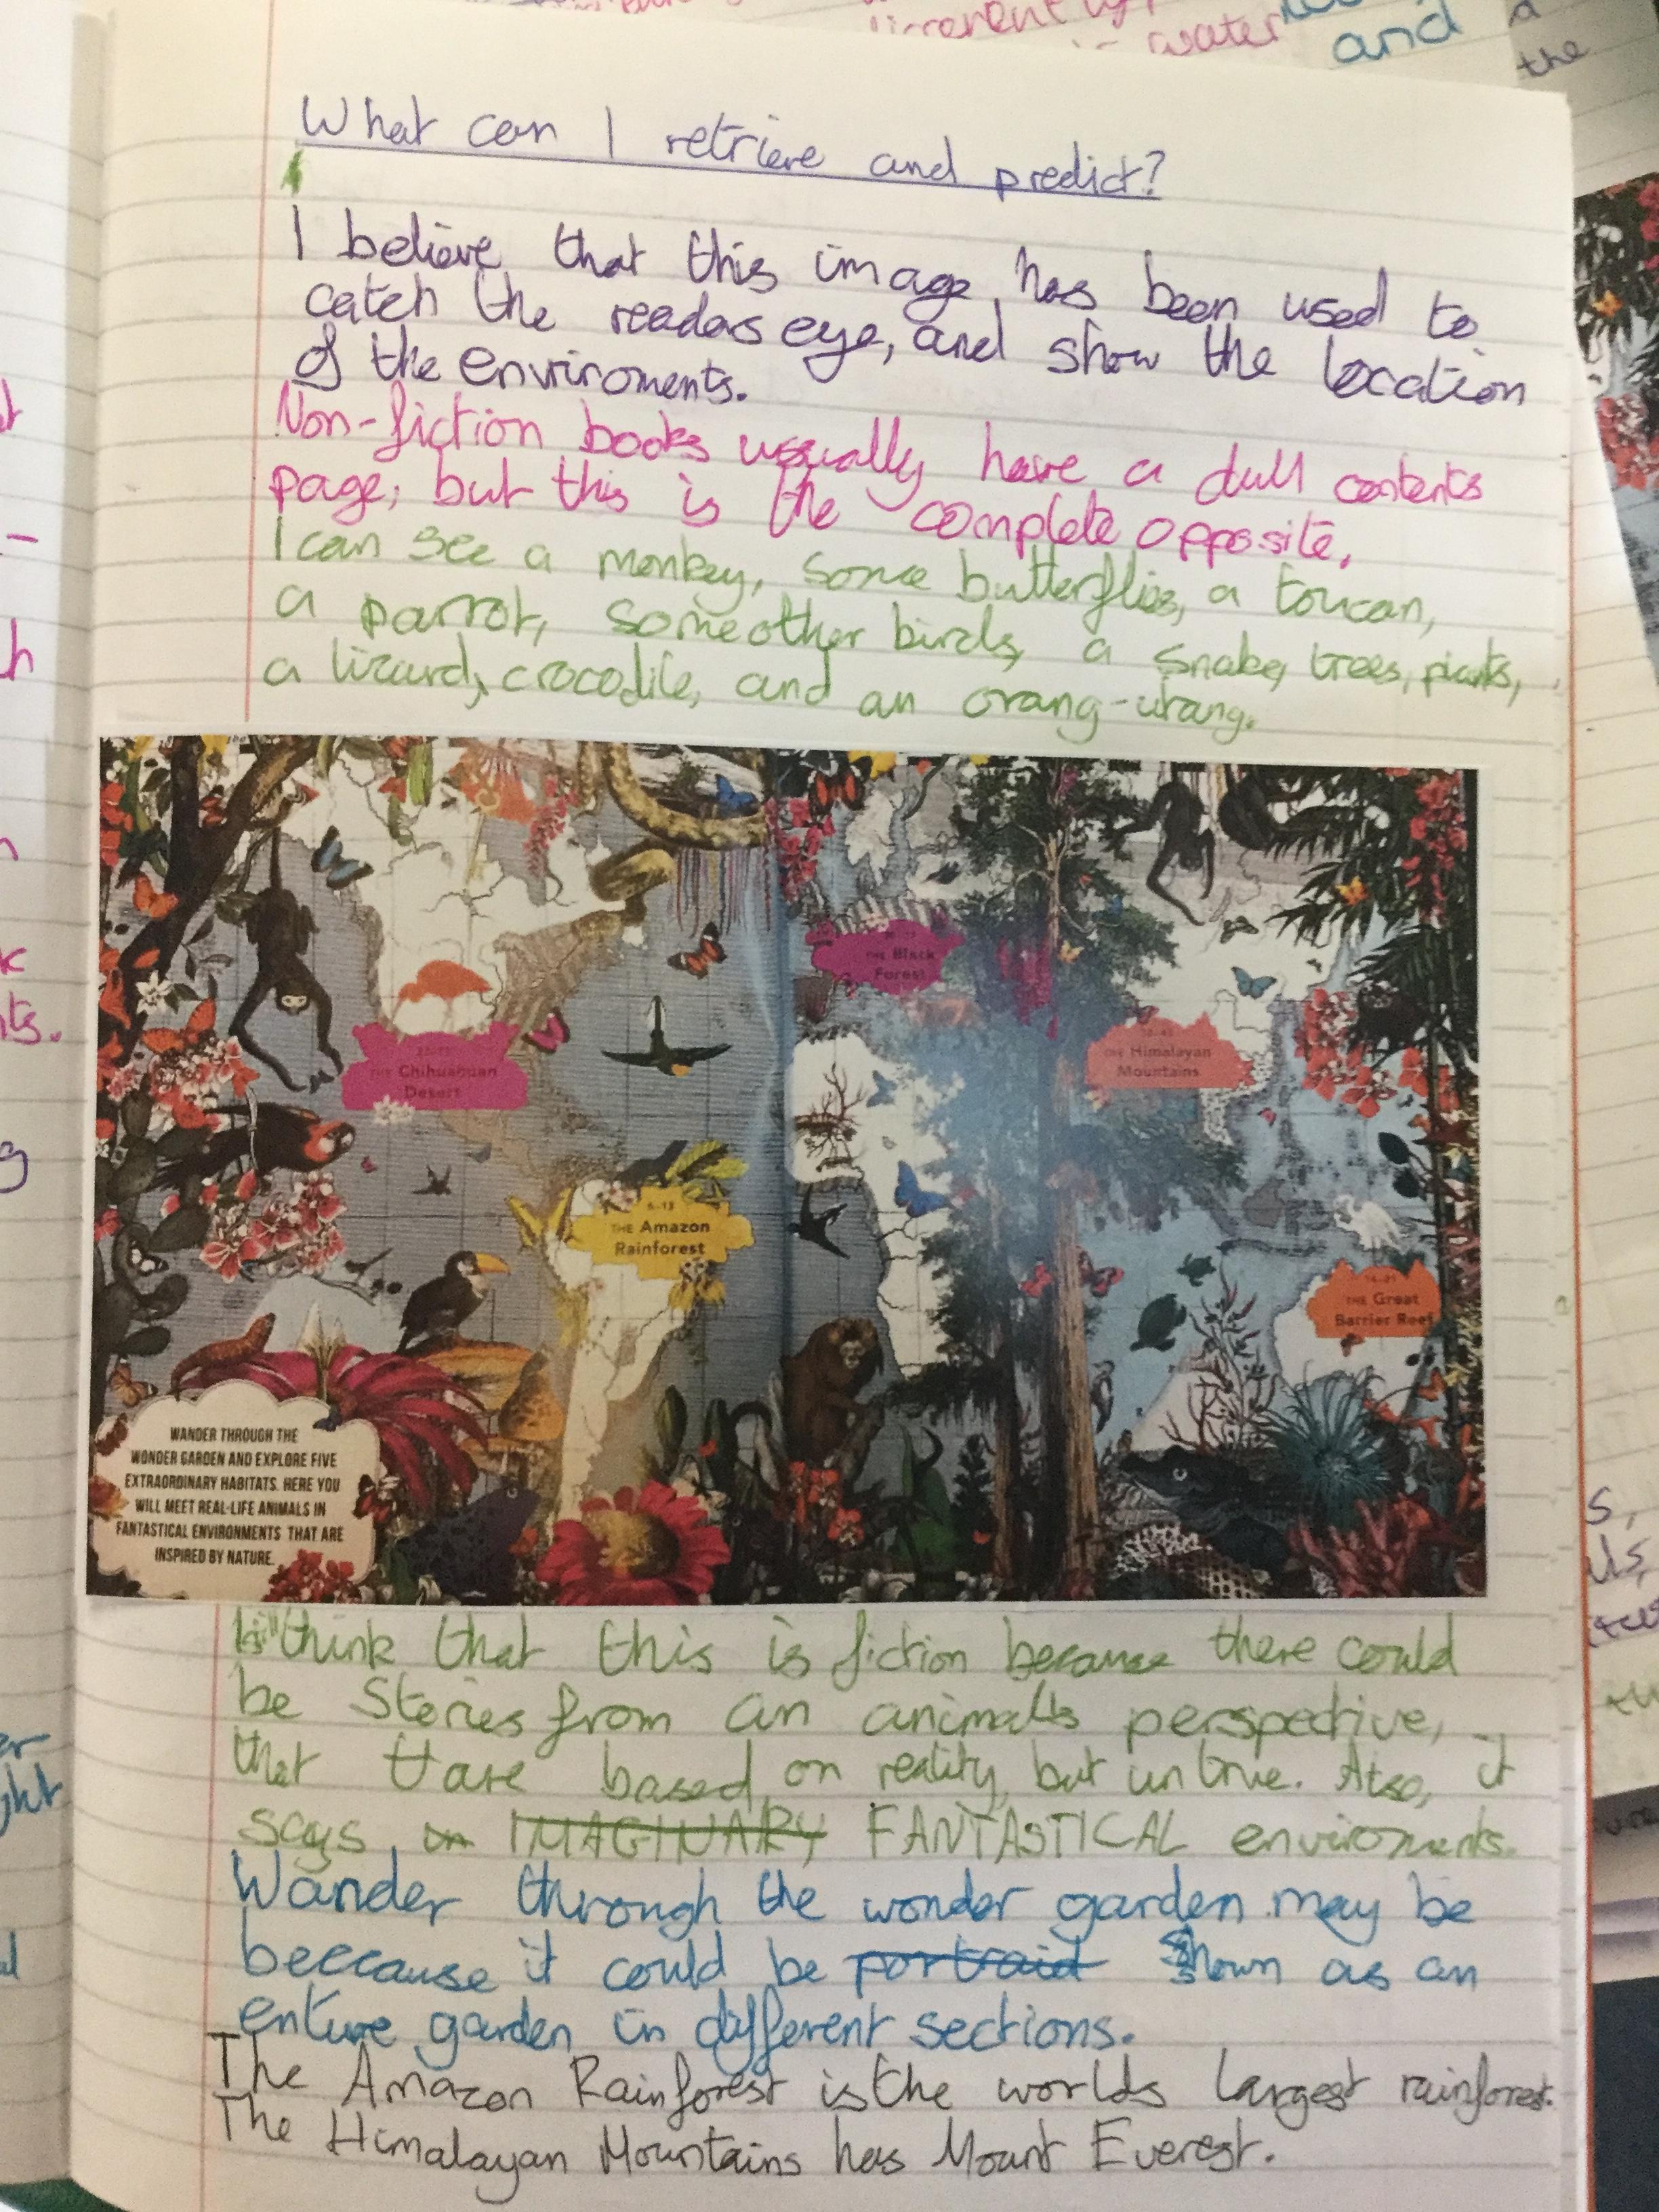 What can I retrieve and predict?
I believe that this image has been used to
catch the readers eye, and show the location
of the enviroments.
Non-fiction books usually have a dull contents
page, but this is the complete opposite.
I can see a monkey, some butterflies, a toucan,
a parrot, some other birds, a snake, trees, plants,
a lizard, crocodile, and an orang-utang.
THE Black
Forest
THE Chihuahuan
Desert
THE Himalayan
Mountains
6-13
THE Amazon
Rainforest
THE Great
Barrier Reef
WANDER THROUGH THE
WONDER GARDEN AND EXPLORE FIVE
EXTRAORDINARY HABITATS. HERE YOU
WILL MEET REAL-LIFE ANIMALS IN
FANTASTICAL ENVIRONMENTS THAT ARE
INSPIRED BY NATURE.
think that this is fiction because there could
be stories from an animals perspective,
that are based on reality, but untrue. Also, it
says IMAGINARY FANTASTICAL enviroments.
Wander through the wonder garden may be
beccause it could be portraid shown as an
enture garden in different sections.
The Amazon Rainforest is the worlds largest rainforest.
The Himalayan Mountains has Mount Everest.
water
and
the